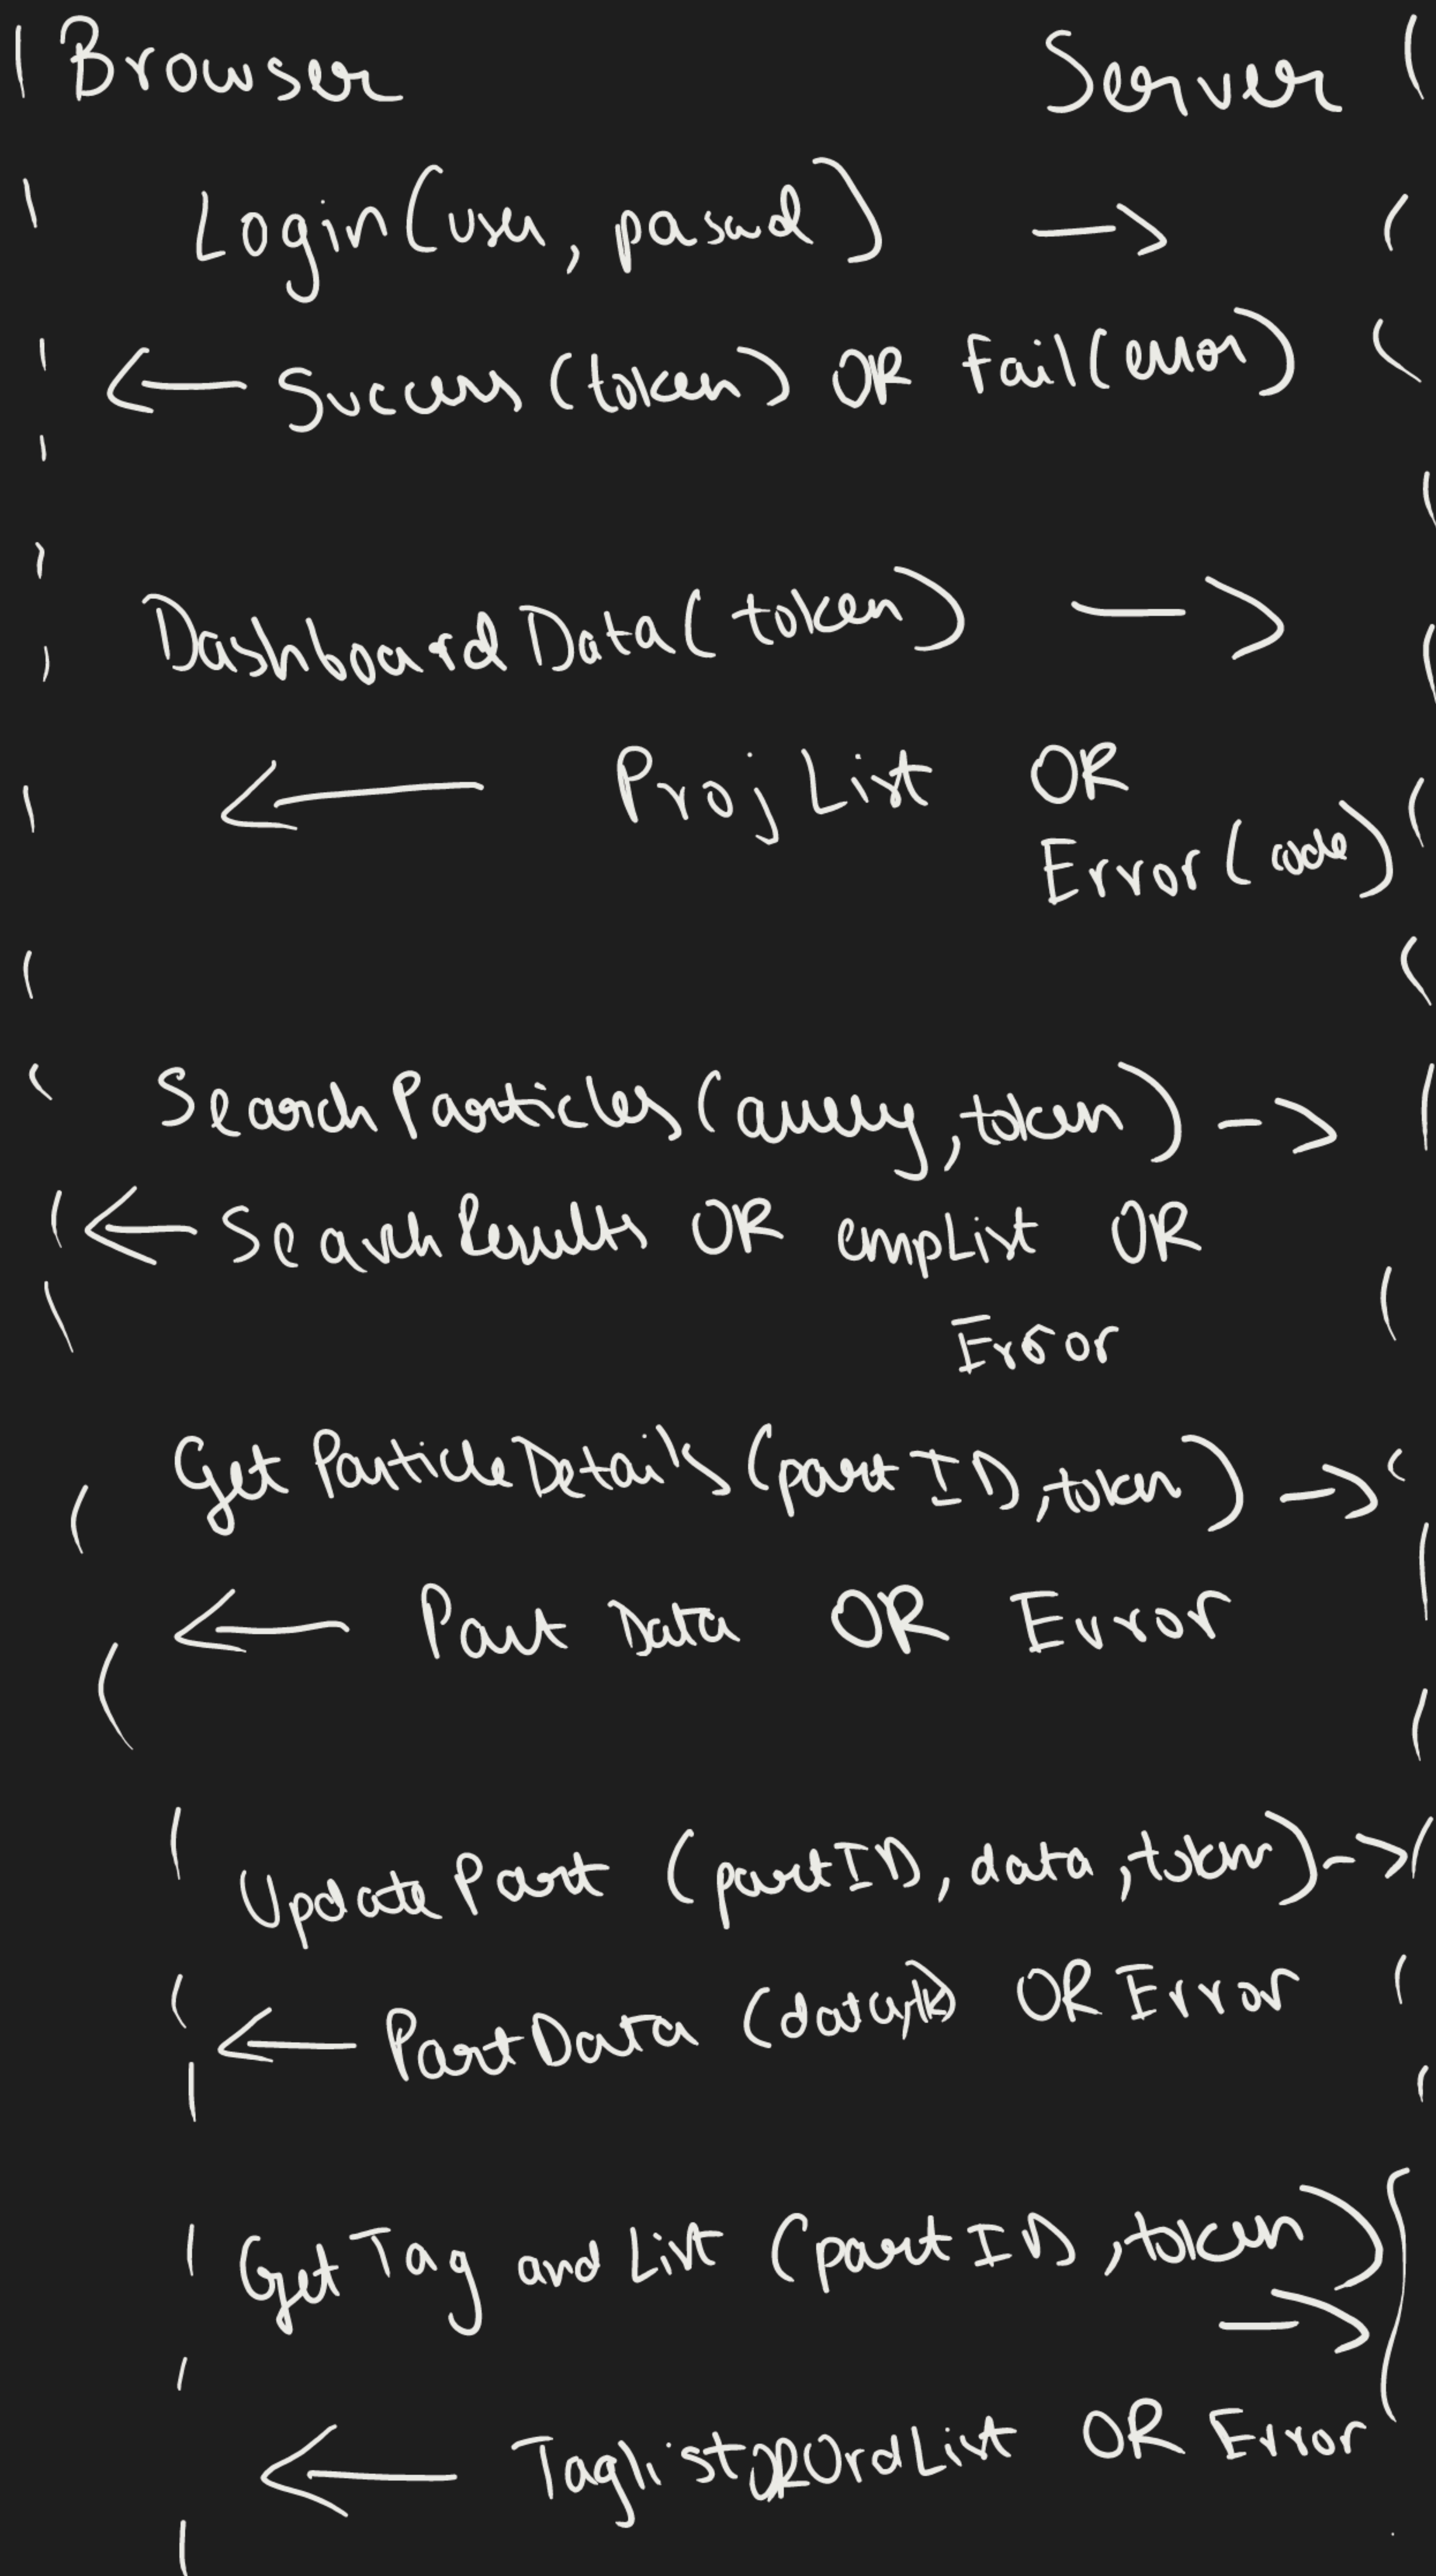 Browser Server
Login(user, paswd) →
← Success (token) OR Fail(error)
DashboardData(token) →
← ProjList OR
Error(code)
SearchParticles(query, token) →
← SearchResults OR empList OR
Error
Get ParticleDetails(partID, token) →
← Part Data OR Error
Update Part (partID, data, token) →
← PartData OR Error
Get Tag and List (partID, token)
→
← TaglistOROrdList OR Error